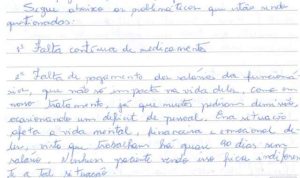 Segue abaixo as problemáticas que estão sendo
questionadas:
1º Falta contínua de medicamentos
2º Falta de pagamento dos salários da funcioná-
rios, que não só impacta na vida deles, como em
nosso tratamento, já que muitos pediram demissão,
ocasionando um déficit de pessoal. Essa situação
afeta a vida mental, financeira e emocional de-
les, visto que trabalham há quase 90 dias sem
salário. Nenhum paciente vendo isso fica indiferen-
te a tal situação.